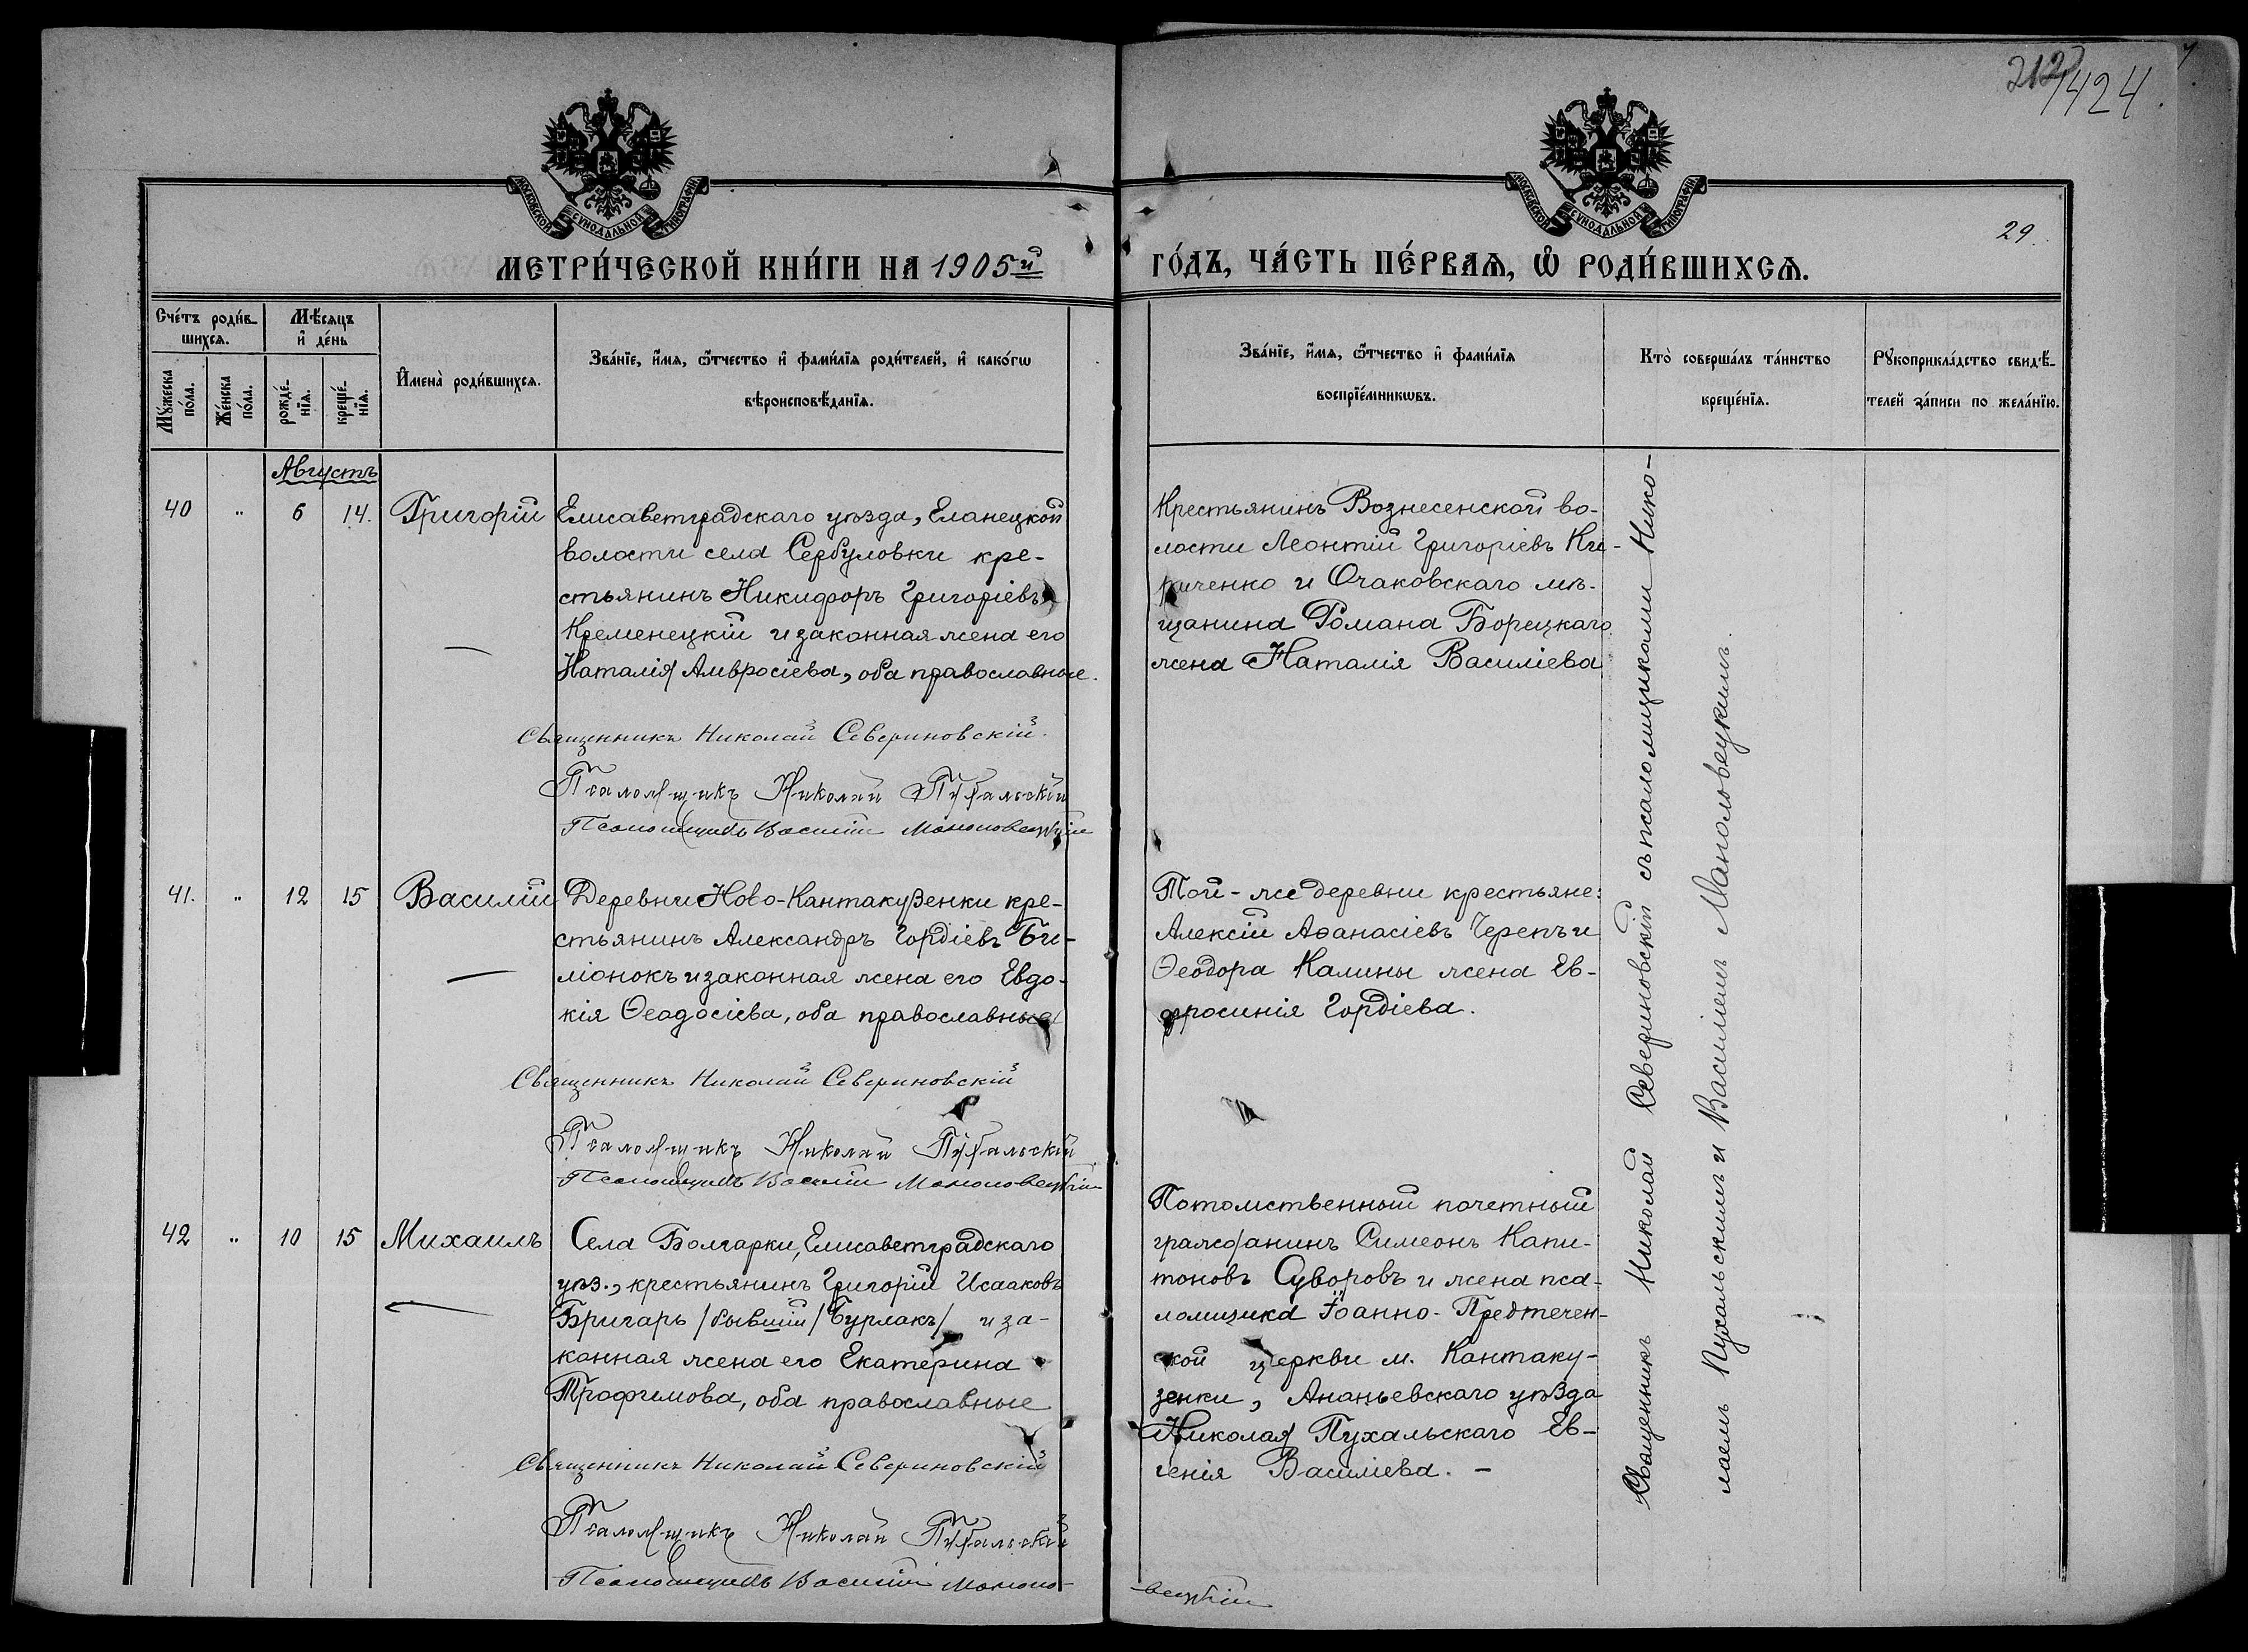 212
1424.
МОСКОВСКОЙ СѴНОДАЛЬНОЙ ТИПОГРАФІИ
МОСКОВСКОЙ СѴНОДАЛЬНОЙ ТИПОГРАФІИ
29.
МЕТРИ́ЧЕСКОЙ КНИ́ГИ НА 1905й
ГО́ДЪ, ЧА́СТЬ ПЕ́РВАѦ, Ѡ РОДИ́ВШИХСѦ.
Сче́тъ роди́в-
шихсѧ.
Мꙋ́жеска
по́ла.
Же́нска
по́ла.
Мѣ́сѧцъ
и҆ де́нь
рожде́-
нїѧ.
креще́-
нїѧ.
И҆мена̀ роди́вшихсѧ.
Зва́нїе, и҆́мѧ, ѻ҆́тчество и҆ фами́лїѧ роди́телей, и҆ како́гѡ
вѣроисповѣ́данїѧ.
Зва́нїе, и҆́мѧ, ѻ҆́тчество и҆ фами́лїѧ
воспрїе́мникѡвъ.
Кто̀ соверша́лъ та́инство
креще́нїѧ.
Рꙋкоприкла́дство свидѣ́-
телей за́писи по жела́нїю.
Августъ
40 " 6 14. Григорій
Елисаветградскаго уѣзда, Еланецкой
волости села Сербуловки кре-
стьянинъ Никифоръ Григоріевъ
Кременецкій и законная жена его
Наталія Амвросіева, оба православные.
Священникъ Николай Севериновскій.
Псаломщикъ Николай Пухальскій
Псаломщикъ Василій Маноловецкій
Крестьянинъ Вознесенской во-
лости Леонтій Григоріевъ Ки-
риченко и Очаковскаго мѣ-
щанина Романа Борецкаго
жена Наталія Василіева
41. " 12 15 Василій
Деревни Ново-Кантакузенки кре-
стьянинъ Александръ Гордіевъ Би-
ліонокъ и законная жена его Евдо-
кія Ѳеодосіева, оба православные
Священникъ Николай Севериновскій
Псаломщикъ Николай Пухальскій
Псаломщикъ Василій Маноловецкій
Той-же деревни крестьяне:
Алексій Аѳанасіевъ Черепъ и
Ѳеодора Калины жена Ев-
фросинія Гордіева.
42 " 10 15 Михаилъ
Села Болгарки, Елисаветградскаго
уѣз., крестьянинъ Григорій Исааковъ
Бригарь /бывшій/ Бурлакъ/ и за-
конная жена его Екатерина
Трофимова, оба православные
Священникъ Николай Севериновскій
Псаломщикъ Николай Пухальскій
Псаломщикъ Василій Маноло-
вецкій
Потомственный почетный
гражданинъ Симеонъ Капи-
тоновъ Суворовъ и жена пса-
ломщика Іоанно-Предтечен-
ской церкви м. Кантаку-
зенки, Ананьевскаго уѣзда
Николая Пухальскаго Ев-
генія Василіева. —
Священникъ Николай Севериновскій съ псаломщиками Нико-
лаемъ Пухальскимъ и Василіемъ Маноловецкимъ.